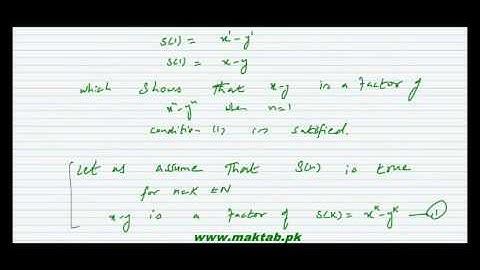 S(1) = x¹-y¹
S(1) = x-y
which shows that x-y is a factor of
xⁿ-yⁿ when n=1
condition (1) is satisfied.
Let us assume that S(n) is true
for n=k ∈N
x-y is a factor of S(k) = x^k-y^k —(1)
www.maktab.pk